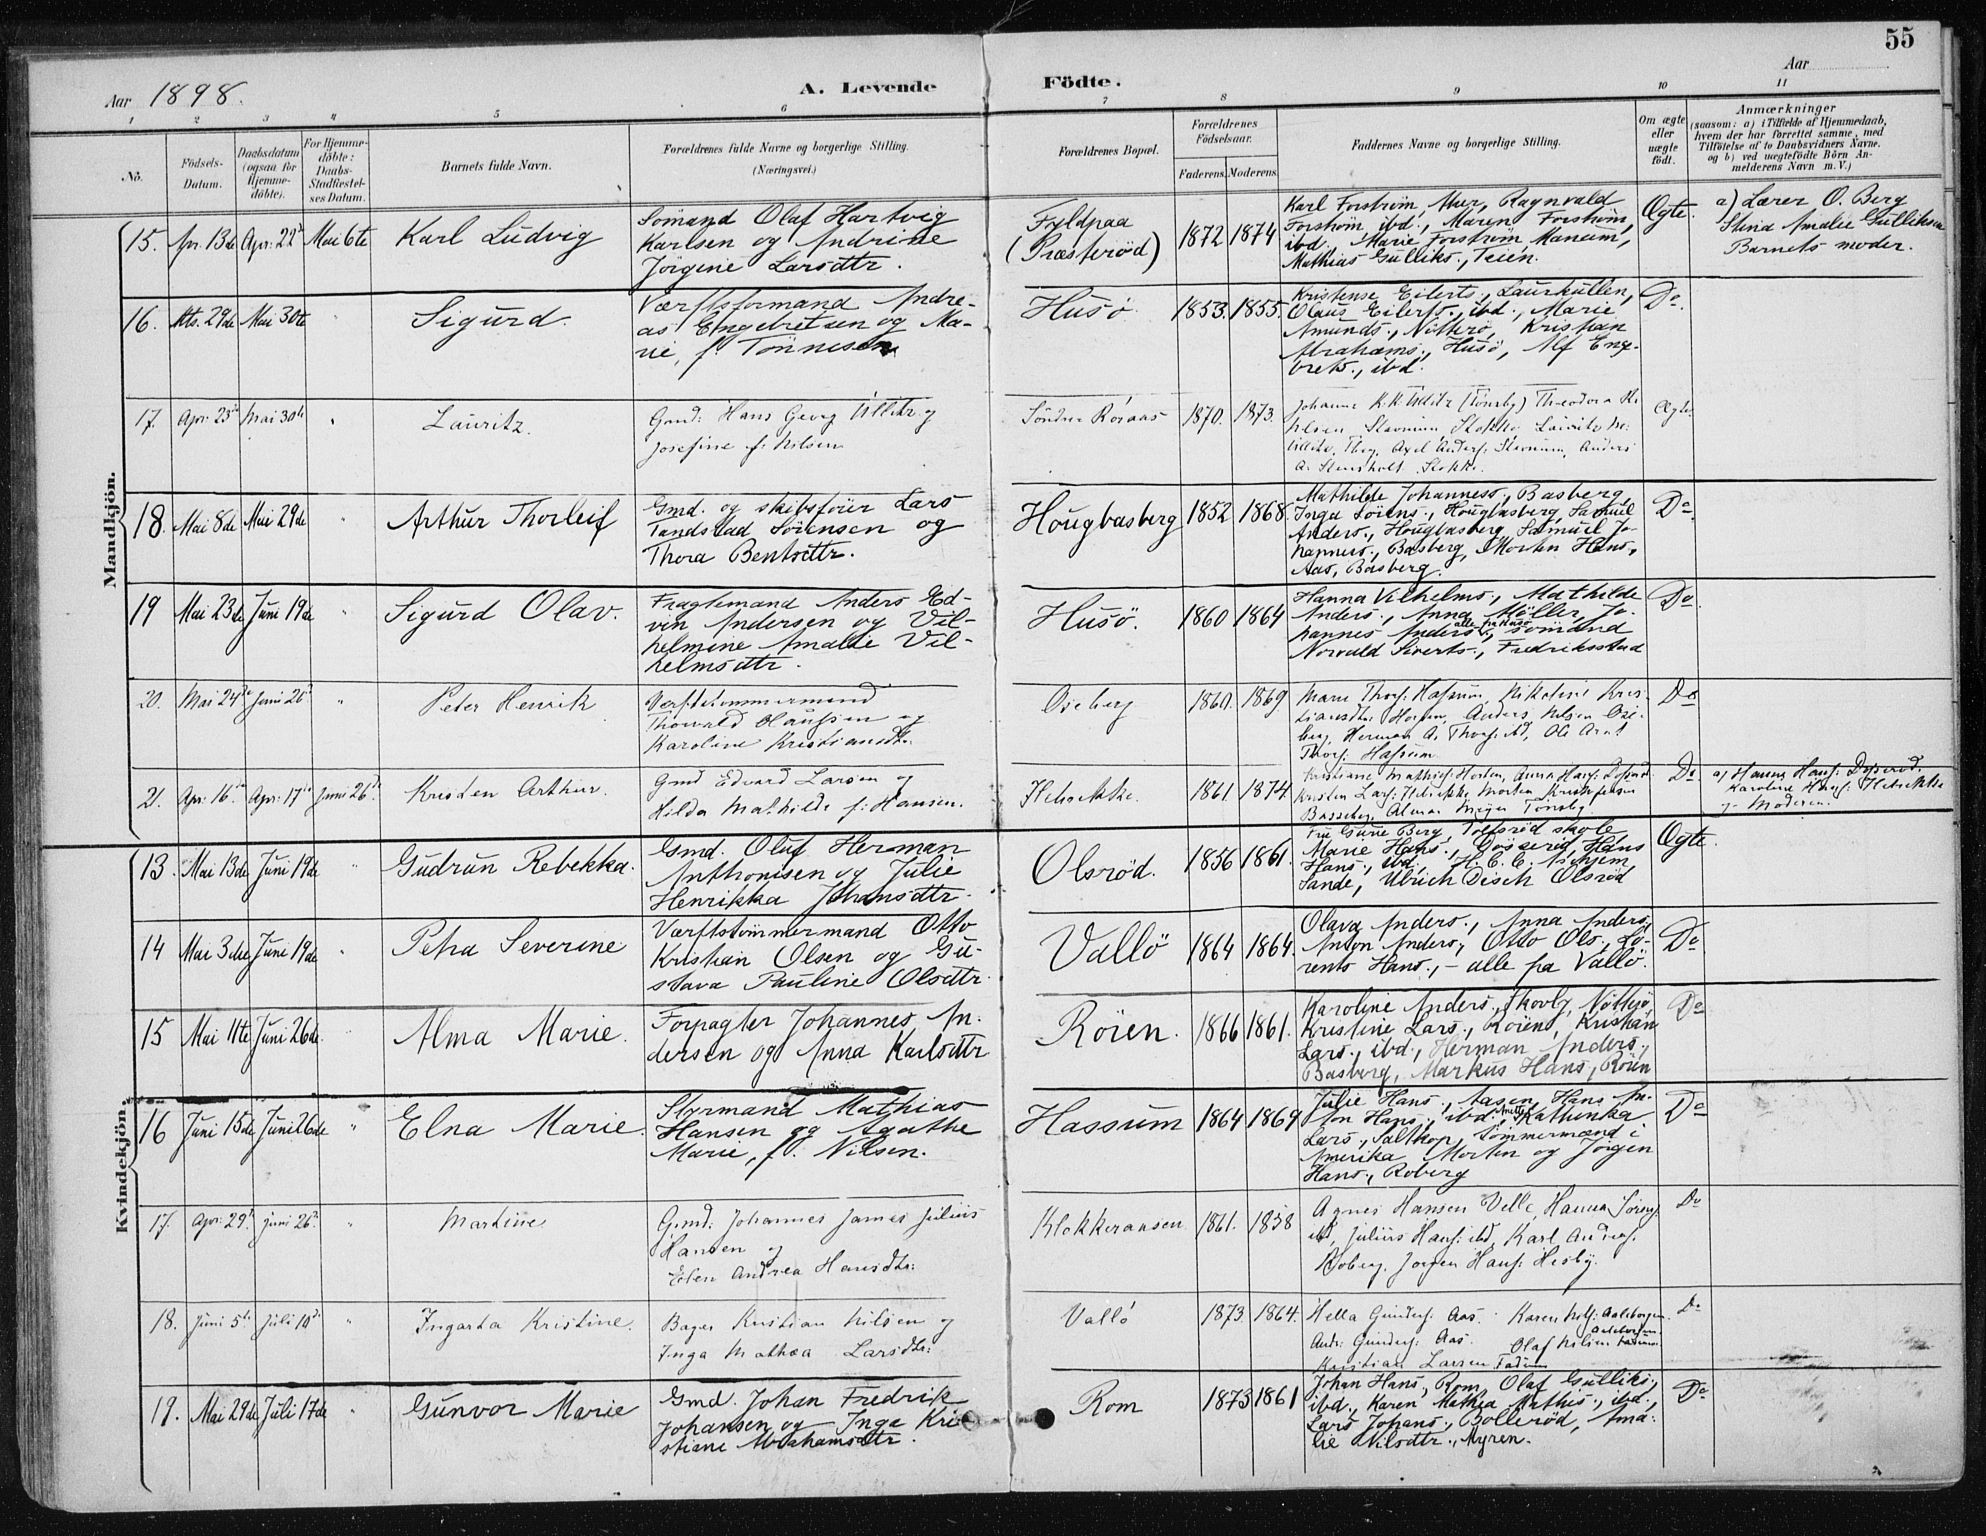 55
Aar 1898.
A. Levende Födte.
Aar
1 2 3 4 5 6 7 8 9 10 11
No.
Födsels-
Datum.
Daabsdatum
(ogsaa for
Hjemme-
döbte).
For Hjemme-
döbte:
Daabs-
Stadfæstel-
ses Datum.
Barnets fulde Navn.
Forældrenes fulde Navne og borgerlige Stilling.
(Næringsvei.)
Forældrenes Bopæl.
Forældrenes
Födselsaar.
Faderens. Moderens.
Faddernes Navne og borgerlige Stilling.
Om ægte
eller
uægte
födt.
Anmærkninger
(saasom: a) i Tilfælde af Hjemmedaab,
hvem der har forrettet samme, med
Tilföielse af to Daabsvidners Navne.
og b) ved uægtefödte Börn An-
melderens Navn m. V.)
Mandkjön.
15. Apr. 13de Apr. 22de Mai 6te Karl Ludvig
Sömand Olaf Hartvig
Karlsen og Andrine
Jörgine Larsdtr.
Fyldpaa
(Præsteröd)
1872 1874
Karl Forström, Mur, Ragnvald
Forström ibd., Maren Forström,
ibd., Marie Forström Manum,
Mathias Gulliks., Teien.
Ægte.
a) Lærer O. Berg
Stina Amalie Gulliksen
Barnets moder.
16. Mts. 29de Mai 30te " Sigurd.
Værftsformand Andre-
as Engebretsen og Ma-
rie, f. Tönnesen
Husö 1853. 1855.
Kristense Eilerts.,
Olaus Eilerts., ibd., Marie
Amunds., Nötterö, Kristian
Abrahams., Husö, Alf Enge-
brets., ibd.
Do.
17. Apr. 23de Mai 30te " Lauritz.
Gmd. Hans Georg og
Josefine f. Nilsen
Söndre Roraas 1870. 1873.
Ægte.
18. Mai 8de Mai 29de " Arthur Thorleif
Gmd. og skibsförer Lars
Tandstad Sörensen og
Thora Bentsdtr.
Hougbasberg 1852 1868.
Mathilde Johanness., Basberg,
Inga Sörens., Hougbasberg, Samuel
Anders., Hougbasberg, Samuel Jo-
hanness., Basberg, Morten Hans.,
Aas, Basberg.
Do.
19 Mai 23de Juni 19de " Sigurd Olav.
Fragtemand Anders Ed-
vin Andersen og Vil-
helmine Amalie Vil-
helmsdtr.
Husö. 1860 1864
Hanna Vilhelms., Mathilde
Anders., Anna Möller, Jo-
hannes Anders., alle fra Husö, sömand
Norvald Siverts., Fredriksstad
Do.
20. Mai 24de Juni 26de " Peter Henrik
Værftstömmermand
Thorvald Olaussen og
Karoline Kristiansdtr.
Oseberg 1860. 1869
Do
21. Apr. 16de Apr. 17de Juni 26de Kristen Arthur.
Gmd Edvard Larsen og
Hilda Mathilde f. Hansen.
1861. 1874.
Do
Kvindekjön.
13. Mai 13de Juni 19de Gudrun Rebekka.
Gmd. Oluf Herman
Anthonisen og Julie
Henrikka Johansdtr.
Olsröd. 1856 1861.
Fru Gurie Berg, Tolfsröd skole
Marie Hans., Döseröd, Hans
Hans., ibd., H. C. C.
Sande, Ulrich Disch Olsröd
Ægte.
14 Mai 3die Juni 19de " Petra Severine
Værftstömmermand Otto
Kristian Olsen og Gu-
stava Pauline Olsdtr.
Vallö 1864 1864.
Olava Anders., Anna Anders.,
Anton Anders., Otto Ols., Lo-
rents Hans., – alle fra Vallö.
Do.
15 Mai 11te Juni 26de. Alma Marie.
Forpagter Johannes An-
dersen og Anna Karlsdtr.
Röien. 1866 1861.
Karoline Anders., Skovly, Nötterö,
Kristine Lars., Röien, Kristian
Lars., ibd., Herman Anders.,
Basberg, Markus Hans., Röien
Do
16 Juni 15de Juni 26de " Elna Marie.
Styrmand Mathias
Hansen og Agathe
Marie, f. Nilsen.
Hassum 1864 1869
Julie Hans., Aasen, Hans An-
ton Hans., ibd., Anette Kathinka
Lars., Saltkop, Tömmermænd i
Amerika Morten og Jörgen
Hans., Roberg
Do
17. Apr. 29de Juni 26de " Martine
Gmd: Johannes James Julius
Hansen og
Elen Andrea Hansdtr.
Klokkeraasen 1861. 1858
Agnes Hansen Velle, Hanna Sörens.
ibd, Julius Hans. ibd, Karl Anders.
Roberg, Jörgen Hans. Hesby.
Do
18. Juni 5te Juli 10de " Ingarta Kristine.
Bager Kristian Nilsen og
Inga Mathea Larsdtr.
Vallö 1873. 1864.
Hella Gunders. Aas. Karen Nils. Aaleborgen.
Andr. Gunders. Aas. Olaf Nilsen
Kristian Larsen Fadum
Do
19. Mai 29de Juli 17de " Gunvor Marie
Gmd. Johan Fredrik
Johansen og Inga Kri-
stiane Abrahamsdtr.
Rom 1873 1861
Johan Hans., Rom, Olaf Gulliks.,
ibd., Karen Mathea Mathis., ibd.,
Lars Johans., Bolleröd, Ama-
lie Nilsdtr., Myren.
Do